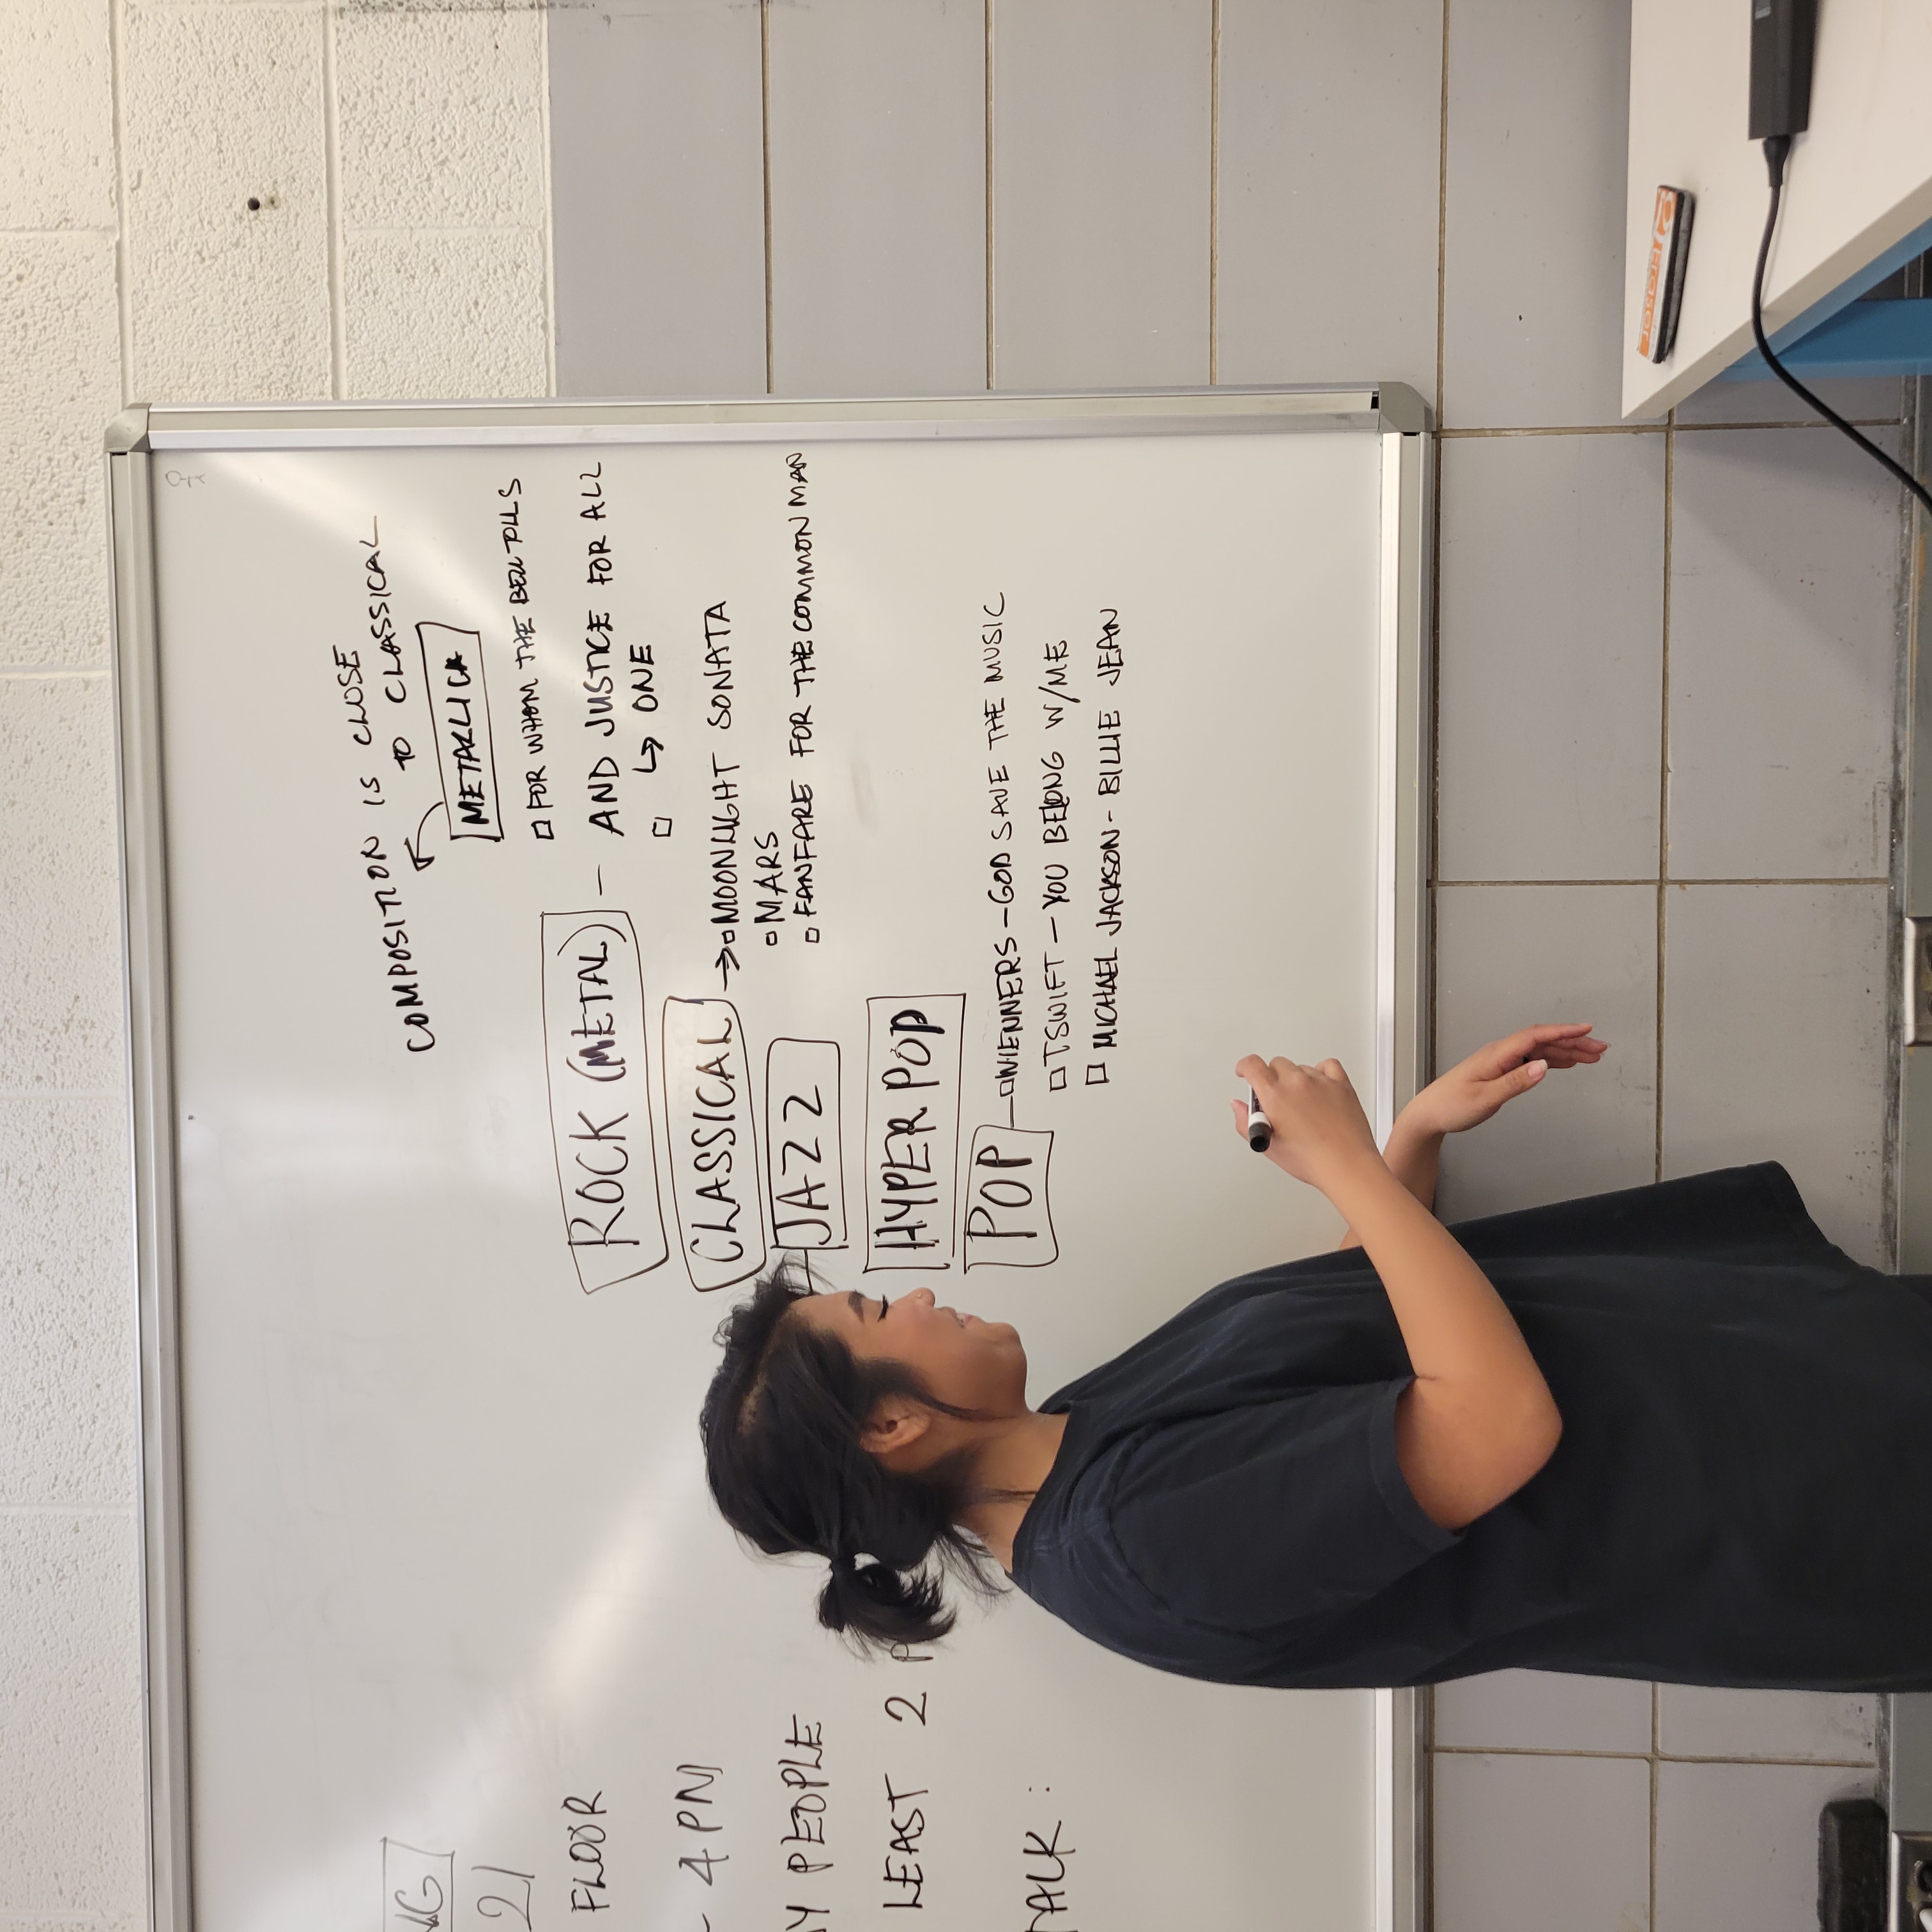 21
FLOOR
- 4 PM
PEOPLE
LEAST 2
TALK :
COMPOSITION IS CLOSE
TO CLASSICAL
METALLICA
FOR WHOM THE BELL TOLLS
ROCK (METAL) — AND JUSTICE FOR ALL
↳ ONE
CLASSICAL → MOONLIGHT SONATA
MARS
FANFARE FOR THE COMMON MAN
JAZZ
HYPER POP
POP — WIENNERS — GOD SAVE THE MUSIC
TSWIFT — YOU BELONG W/ME
MICHAEL JACKSON - BILLIE JEAN